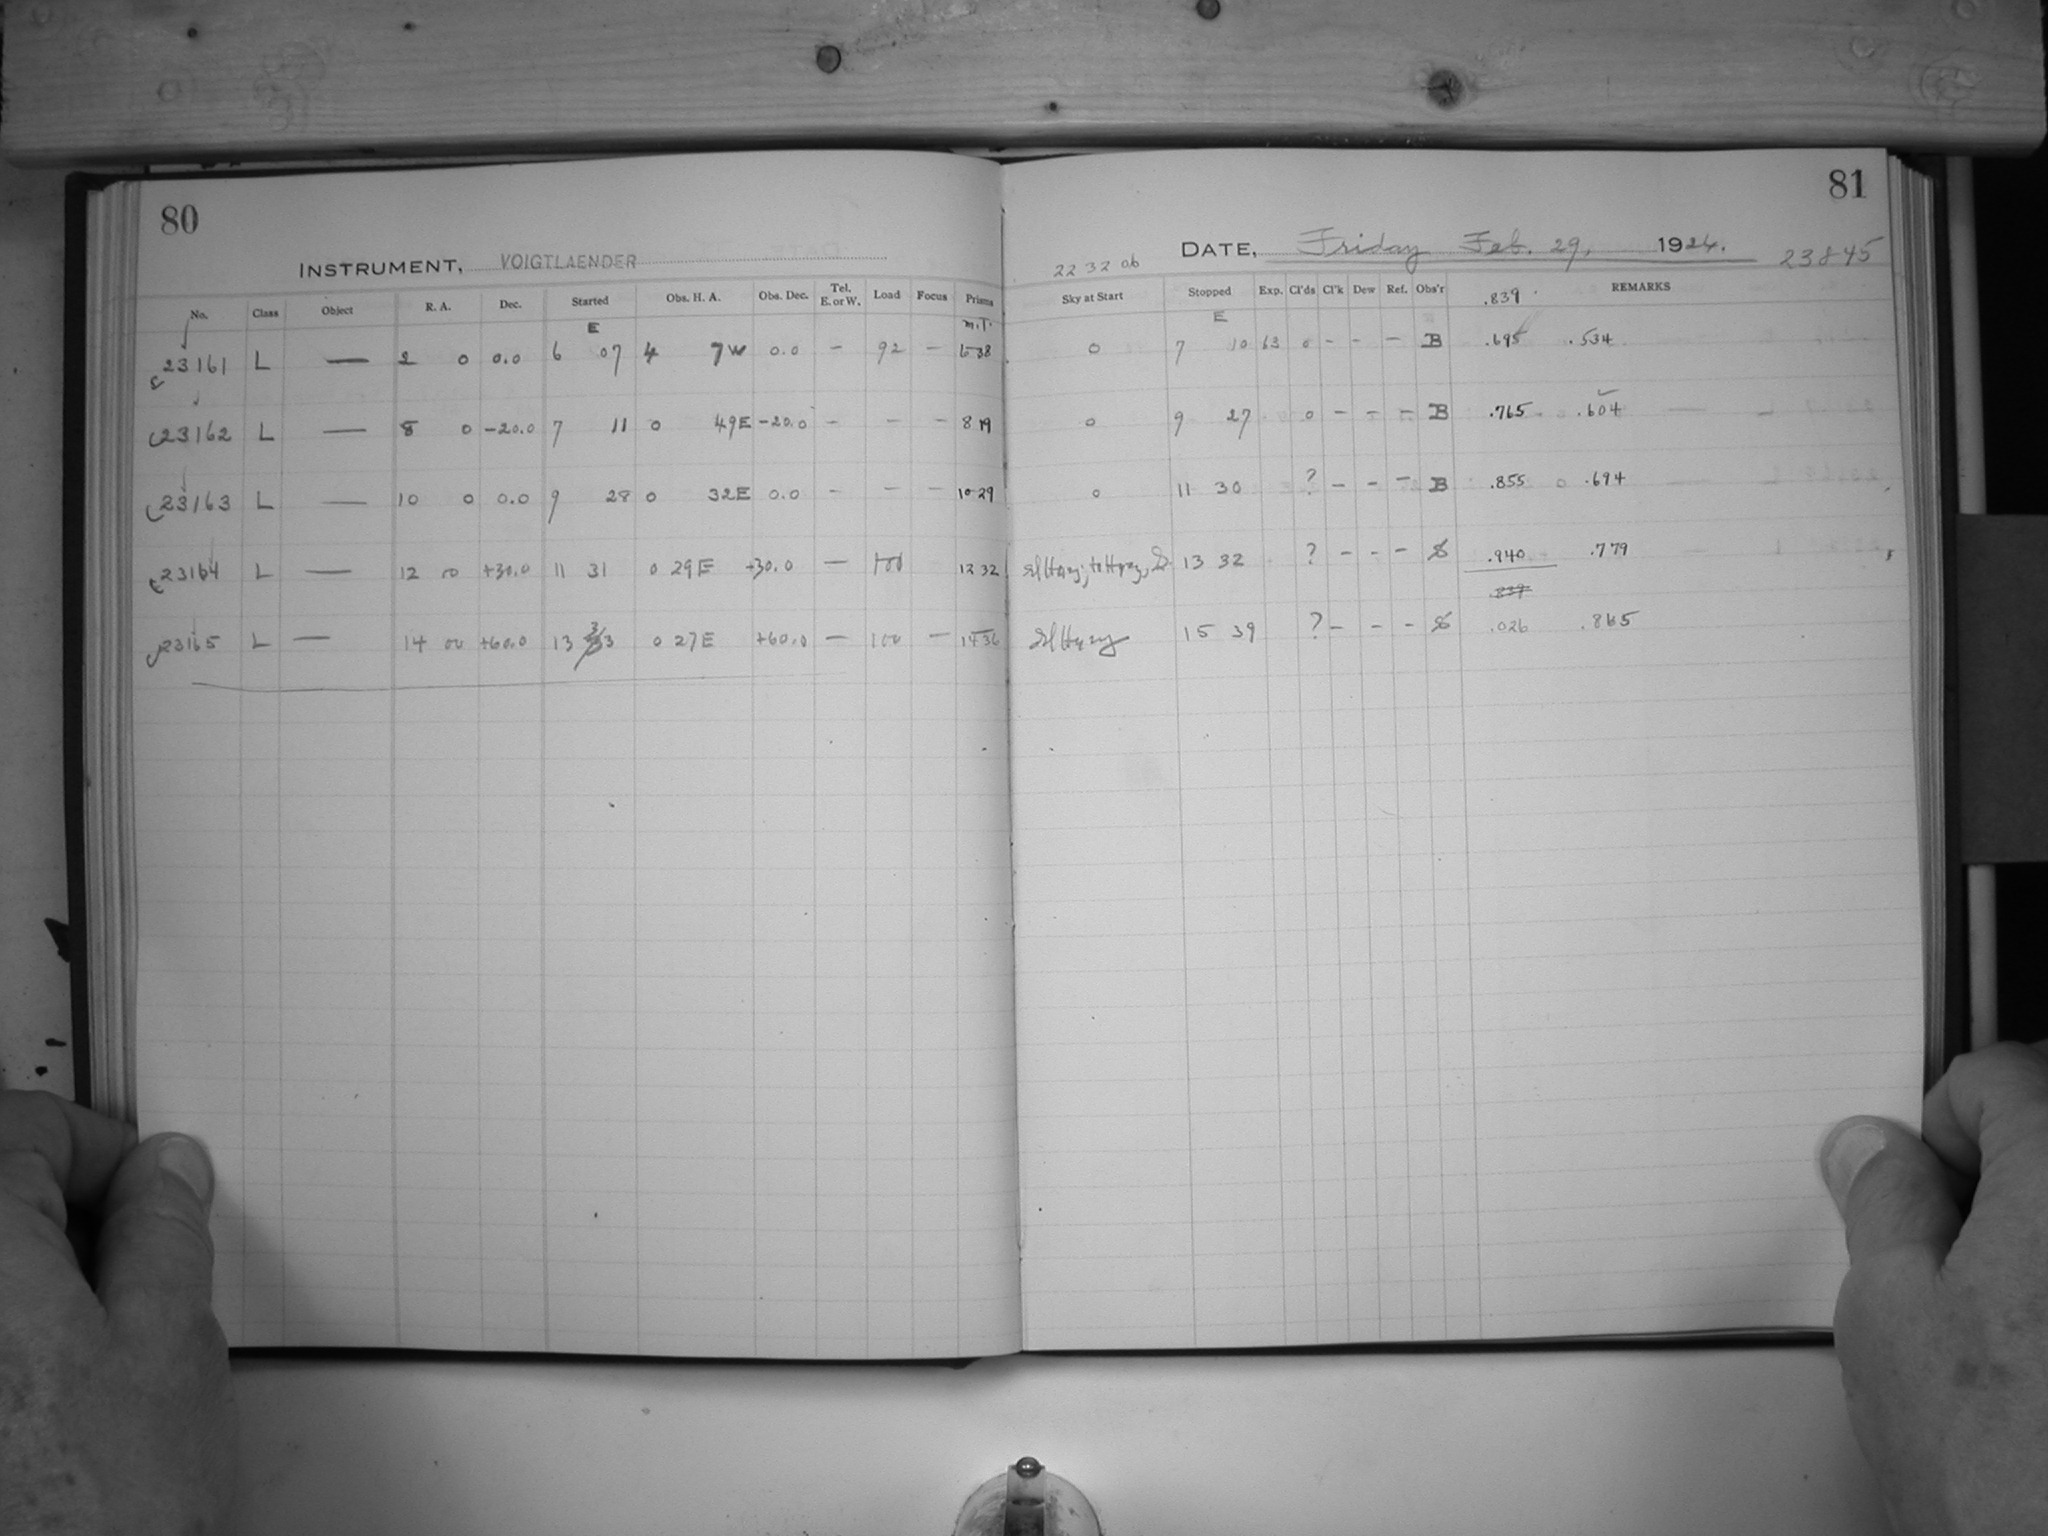 80
81
INSTRUMENT, VOIGTLAENDER
22 32 06
DATE, Friday Feb. 29, 1924.
23845
No. Class Object R. A. Dec. Started Obs. H. A. Obs. Dec. Tel. E. or W. Load Focus Prisms Sky at Start Stopped Exp. Cl'ds Cl'k Dew Ref. Obs'r .839 REMARKS
E M.T. E
23161 L — 2 0 0.0 6 07 4 7W 0.0 - 92 - 6 38 0 7 10 63 0 - - - B .695 .534
23162 L — 8 0 -20.0 7 11 0 49E -20.0 - - - 8 19 0 9 27 0 - - - B .765 .604
23163 L — 10 0 0.0 9 28 0 32E 0.0 - - - 10 29 0 11 30 ? - - - B .855 .694
23164 L — 12 00 +30.0 11 31 0 29E +30.0 — 100 12 32 13 32 ? - - - S .940 .779
.839
23165 L — 14 00 +60.0 13 33 0 27E +60.0 — 100 - 14 36 Sl Hazy 15 39 ? - - - S .026 .865